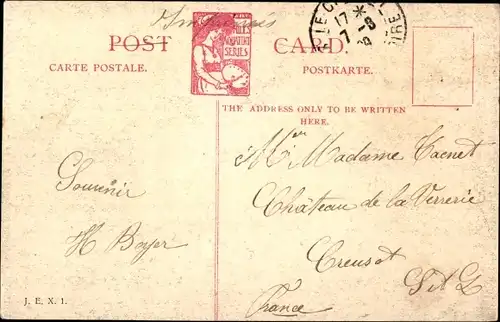 Imprimés
POST CARD.
CARTE POSTALE.
POSTKARTE.
SERIES
LE-C
17 * 
7 - 8
THE ADDRESS ONLY TO BE WRITTEN
HERE.
Souvenir
H Boyer
Mr Madame Tacnet
Château de la Verrerie
Creusot
S A L
France
J. E. X. 1.